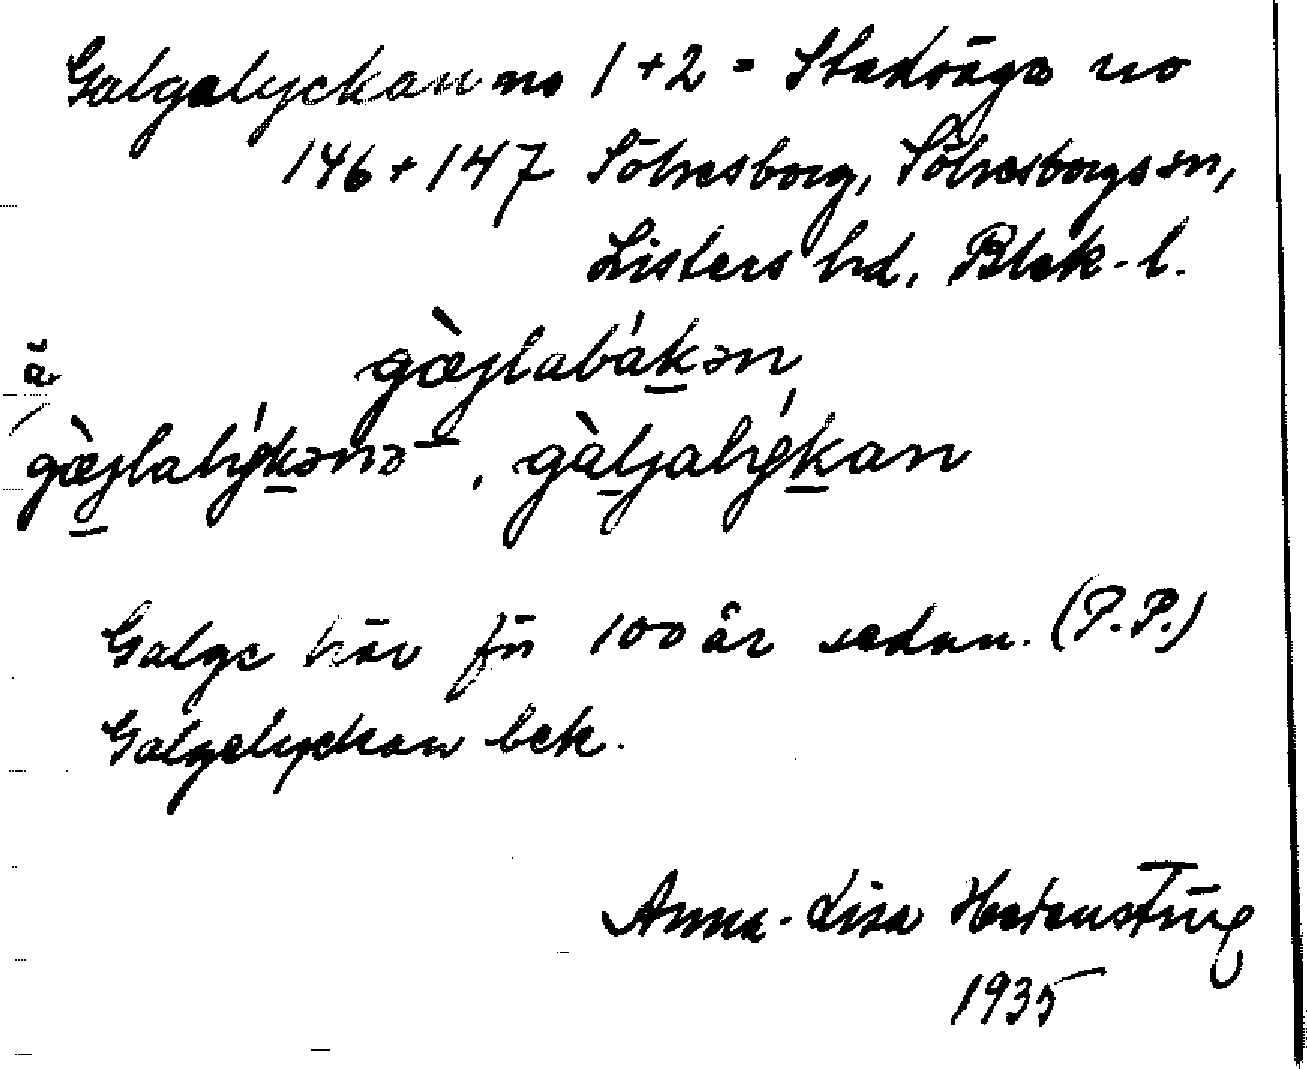 Galgalyckan no 1 + 2 = Stadsäga no
146 + 147 Sölvesborg, Sölvesborgs sn,
Listers hd, Blek. l.
gæ̀jlabákən
gæ̀jlalýkənə, gàljalýkan
Galge här för 100 år sedan. (P.P.)
Galgelyckan bek.
Anna-Lisa Hedenstrüg
1935